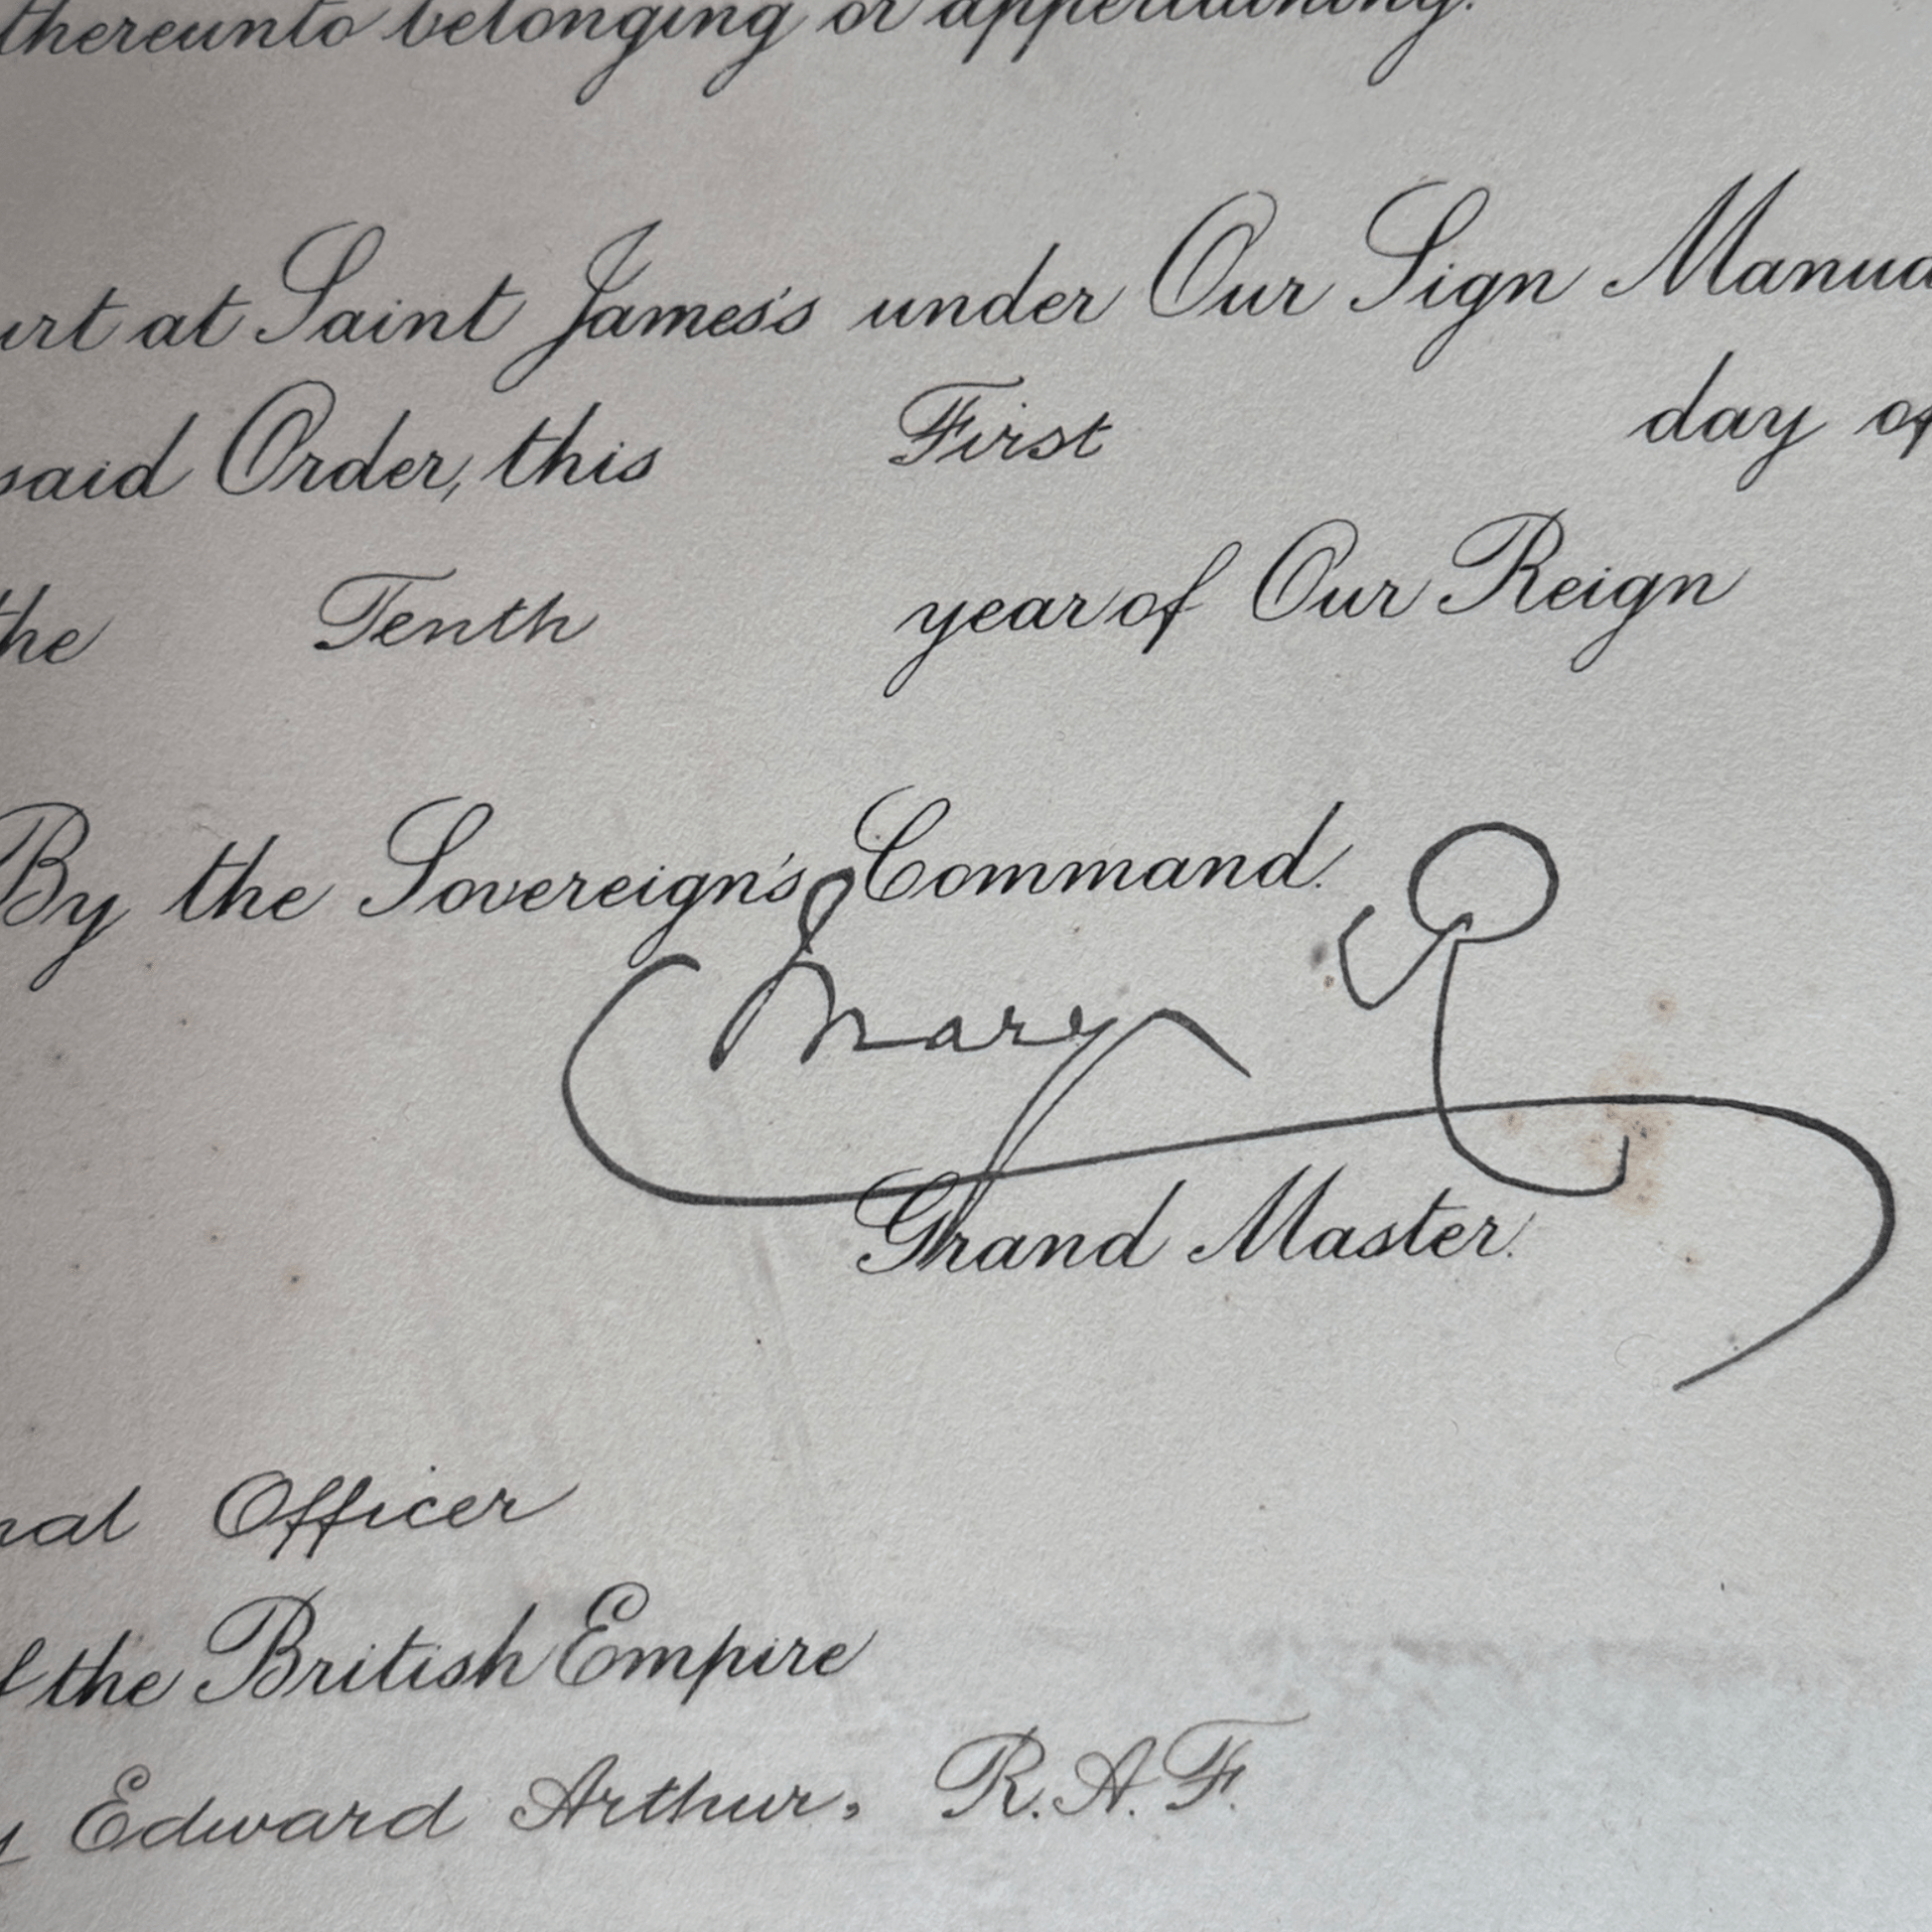 thereunto belonging or appertaining.
at Saint James's under Our Sign
said Order, this First day of
the Tenth year of Our Reign
By the Sovereign's Command.
Mary R
Grand Master.
Officer
the British Empire
Edward Arthur, R.A.F.